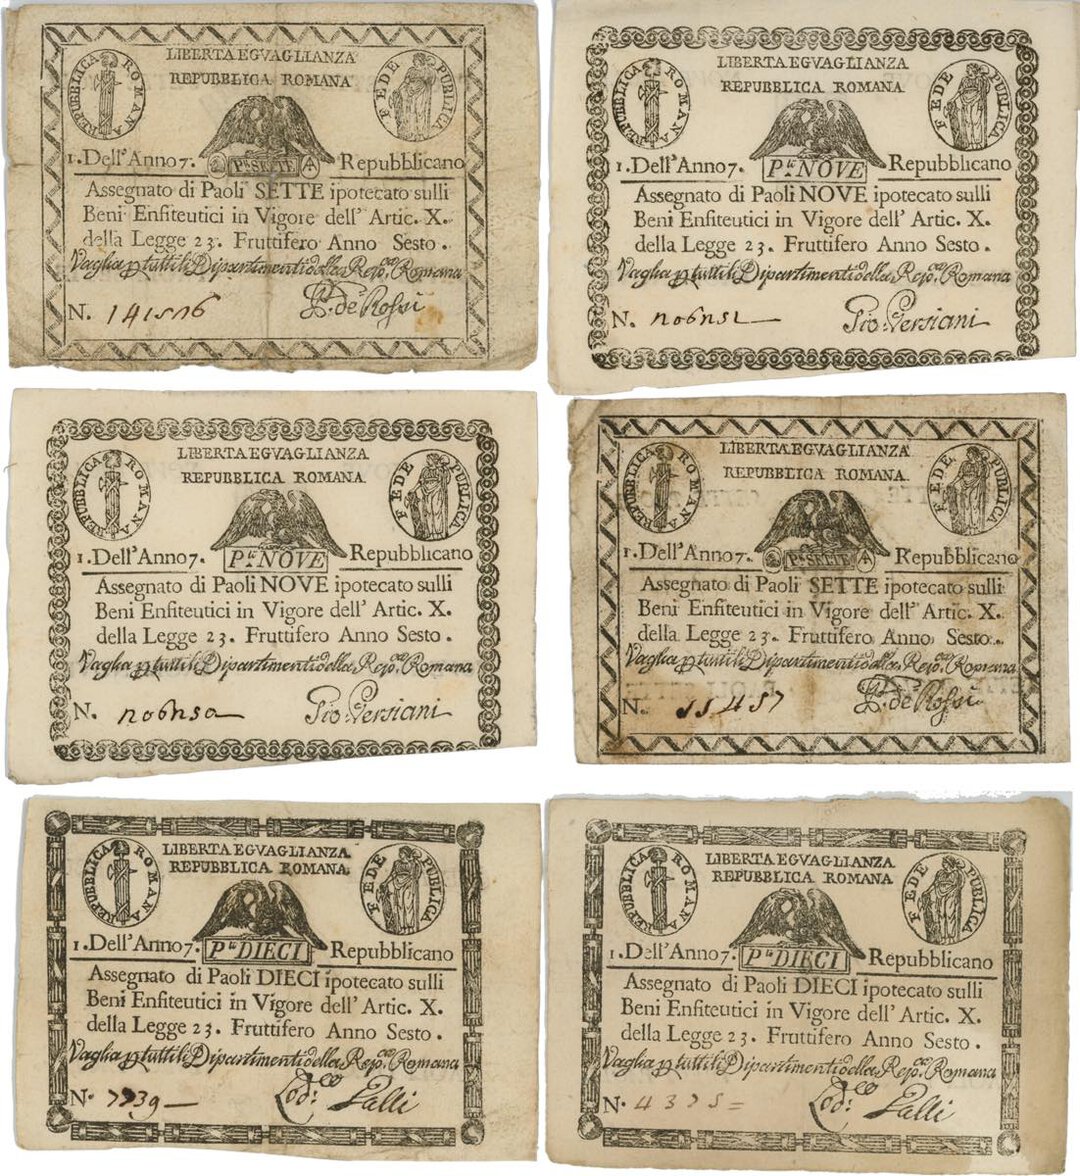 LIBERTA EGVAGLIANZA
REPUBBLICA ROMANA
REPUBBLICA ROMANA
FEDE PUBLICA
1. Dell'Anno 7. Pli SETTE Repubblicano
Assegnato di Paoli SETTE ipotecato sulli
Beni Enfiteutici in Vigore dell' Artic. X.
della Legge 23. Fruttifero Anno Sesto.
Vaglia p tutti li Dipartimenti della Rep.ca Romana
N. 141506
de Rossi
LIBERTA EGVAGLIANZA
REPUBBLICA ROMANA
REPUBBLICA ROMANA
FEDE PUBLICA
1. Dell'Anno 7. Pli NOVE Repubblicano
Assegnato di Paoli NOVE ipotecato sulli
Beni Enfiteutici in Vigore dell' Artic. X.
della Legge 23. Fruttifero Anno Sesto.
Vaglia p tutti li Dipartimenti della Rep.ca Romana
N.
Gio: Versiani
LIBERTA EGVAGLIANZA
REPUBBLICA ROMANA
REPUBBLICA ROMANA
FEDE PUBLICA
1. Dell'Anno 7. Pli NOVE Repubblicano
Assegnato di Paoli NOVE ipotecato sulli
Beni Enfiteutici in Vigore dell' Artic. X.
della Legge 23. Fruttifero Anno Sesto.
Vaglia p tutti li Dipartimenti della Rep.ca Romana
N.
Gio: Versiani
LIBERTA EGVAGLIANZA
REPUBBLICA ROMANA
REPUBBLICA ROMANA
FEDE PUBLICA
1. Dell'Anno 7. Pli SETTE Repubblicano
Assegnato di Paoli SETTE ipotecato sulli
Beni Enfiteutici in Vigore dell' Artic. X.
della Legge 23. Fruttifero Anno Sesto.
Vaglia p tutti li Dipartimenti della Rep.ca Romana
N. 55457
de Rossi
LIBERTA EGVAGLIANZA
REPUBBLICA ROMANA
REPUBBLICA ROMANA
FEDE PUBLICA
1. Dell'Anno 7. Pli DIECI Repubblicano
Assegnato di Paoli DIECI ipotecato sulli
Beni Enfiteutici in Vigore dell' Artic. X.
della Legge 23. Fruttifero Anno Sesto.
Vaglia p tutti li Dipartimenti della Rep.ca Romana
N. 7739
Lod:co Lalli
LIBERTA EGVAGLIANZA
REPUBBLICA ROMANA
REPUBBLICA ROMANA
FEDE PUBLICA
1. Dell'Anno 7. Pli DIECI Repubblicano
Assegnato di Paoli DIECI ipotecato sulli
Beni Enfiteutici in Vigore dell' Artic. X.
della Legge 23. Fruttifero Anno Sesto.
Vaglia p tutti li Dipartimenti della Rep.ca Romana
N. 4375 =
Lod:co Lalli